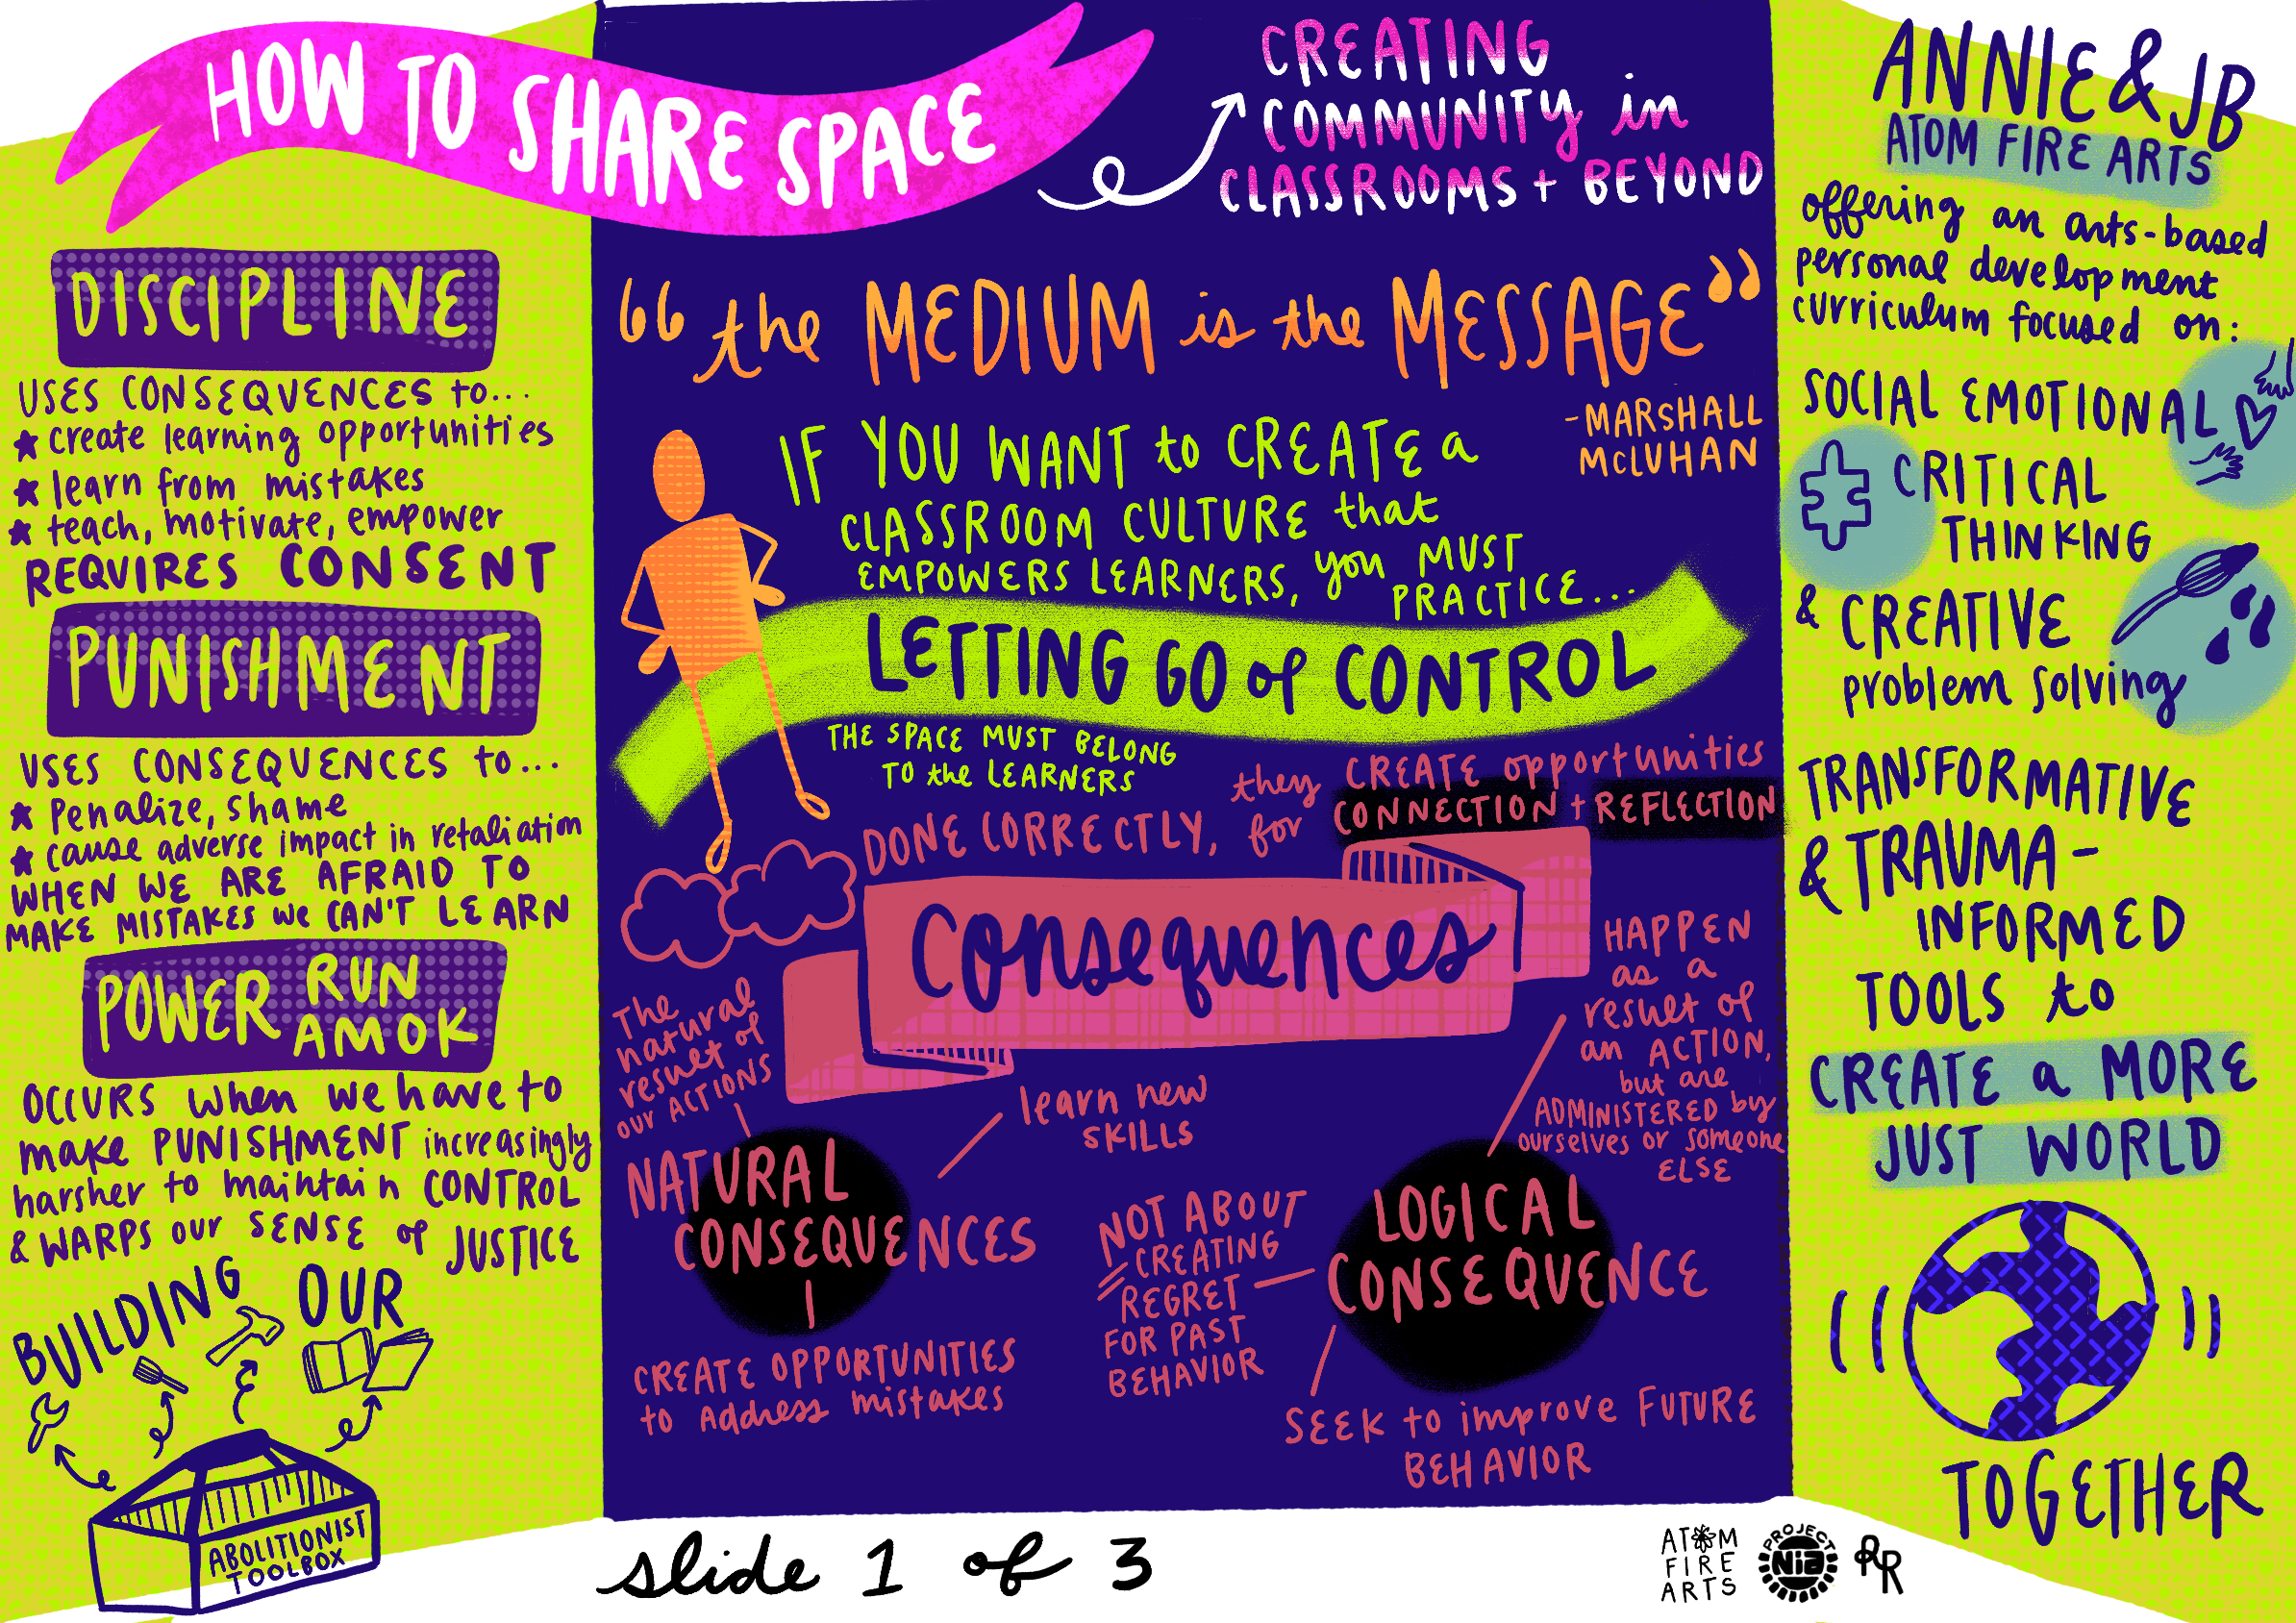 HOW TO SHARE SPACE
CREATING
COMMUNITY in
CLASSROOMS + BEYOND
DISCIPLINE
USES CONSEQUENCES to...
★ create learning opportunities
★ learn from mistakes
★ teach, motivate, empower
REQUIRES CONSENT
PUNISHMENT
USES CONSEQUENCES to...
★ Penalize, shame
★ cause adverse impact in retaliation
WHEN WE ARE AFRAID TO
MAKE MISTAKES we CAN'T LEARN
POWER RUN
AMOK
OCCURS when we have to
make PUNISHMENT increasingly
harsher to maintain CONTROL
& WARPS our SENSE of JUSTICE
BUILDING OUR
ABOLITIONIST
TOOLBOX
“the MEDIUM is the MESSAGE”
-MARSHALL
MCLUHAN
IF YOU WANT to CREATE a
CLASSROOM CULTURE that
EMPOWERS LEARNERS, you MUST
PRACTICE...
LETTING GO of CONTROL
THE SPACE MUST BELONG
TO the LEARNERS
DONE CORRECTLY, they CREATE opportunities
for CONNECTION + REFLECTION
Consequences
The
natural
result of
our ACTIONS
NATURAL
CONSEQUENCES
learn new
SKILLS
CREATE OPPORTUNITIES
to Address mistakes
HAPPEN
as a
result of
an ACTION,
but are
ADMINISTERED by
ourselves or someone
ELSE
LOGICAL
CONSEQUENCE
NOT ABOUT
CREATING
REGRET
FOR PAST
BEHAVIOR
SEEK to improve FUTURE
BEHAVIOR
ANNIE & JB
ATOM FIRE ARTS
offering an arts-based
personal development
curriculum focused on:
SOCIAL EMOTIONAL
CRITICAL
THINKING
& CREATIVE
problem solving
TRANSFORMATIVE
& TRAUMA-
INFORMED
TOOLS to
CREATE a MORE
JUST WORLD
TOGETHER
slide 1 of 3
ATOM
FIRE
ARTS
PROJECT
NIA
RR